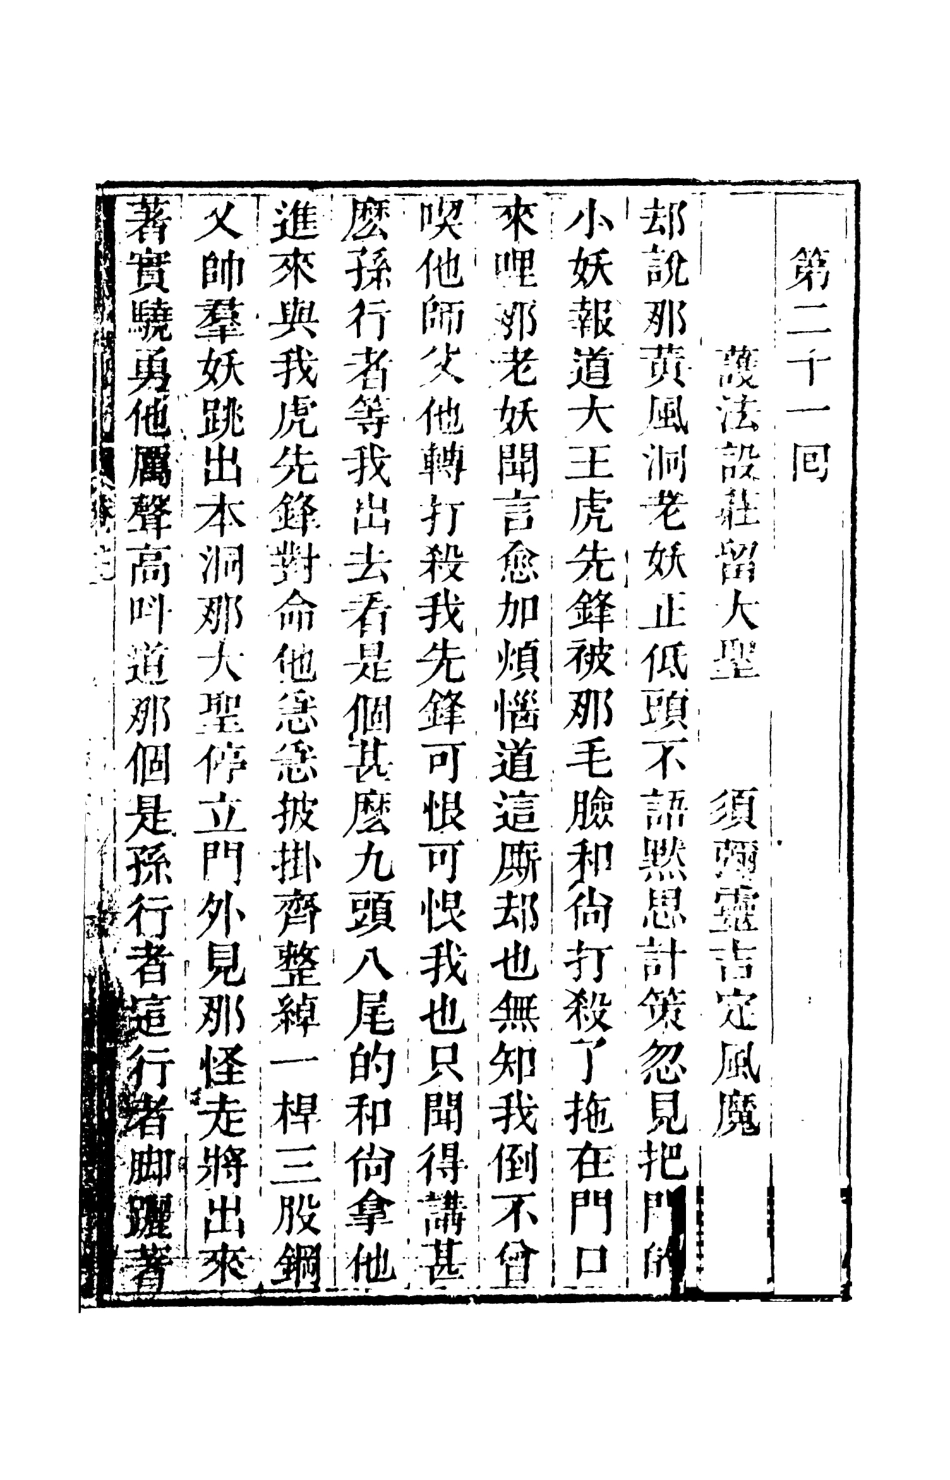 第二十一回
護法設莊留大聖　須彌靈吉定風魔
却說那黃風洞老妖正低頭不語默思計策忽見把門的
小妖報道大王虎先鋒被那毛臉和尙打殺了拖在門口
來哩那老妖聞言愈加煩惱道這厮却也無知我倒不曾
喫他師父他轉打殺我先鋒可恨可恨我也只聞得講甚
麽孫行者等我出去看是個甚麽九頭八尾的和尙拿他
進來與我虎先鋒對命他急急披掛齊整綽一桿三股鋼
叉帥羣妖跳出本洞那大聖停立門外見那怪走將出來
著實驍勇他厲聲高叫道那個是孫行者這行者脚躧著